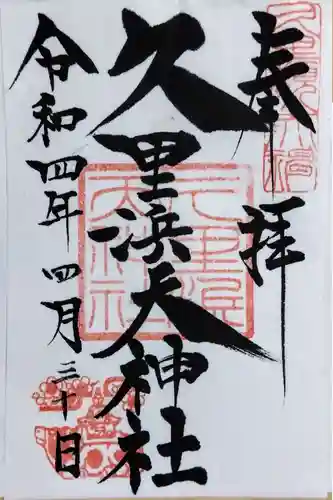 奉拝
久里浜天神社
令和四年四月三十日